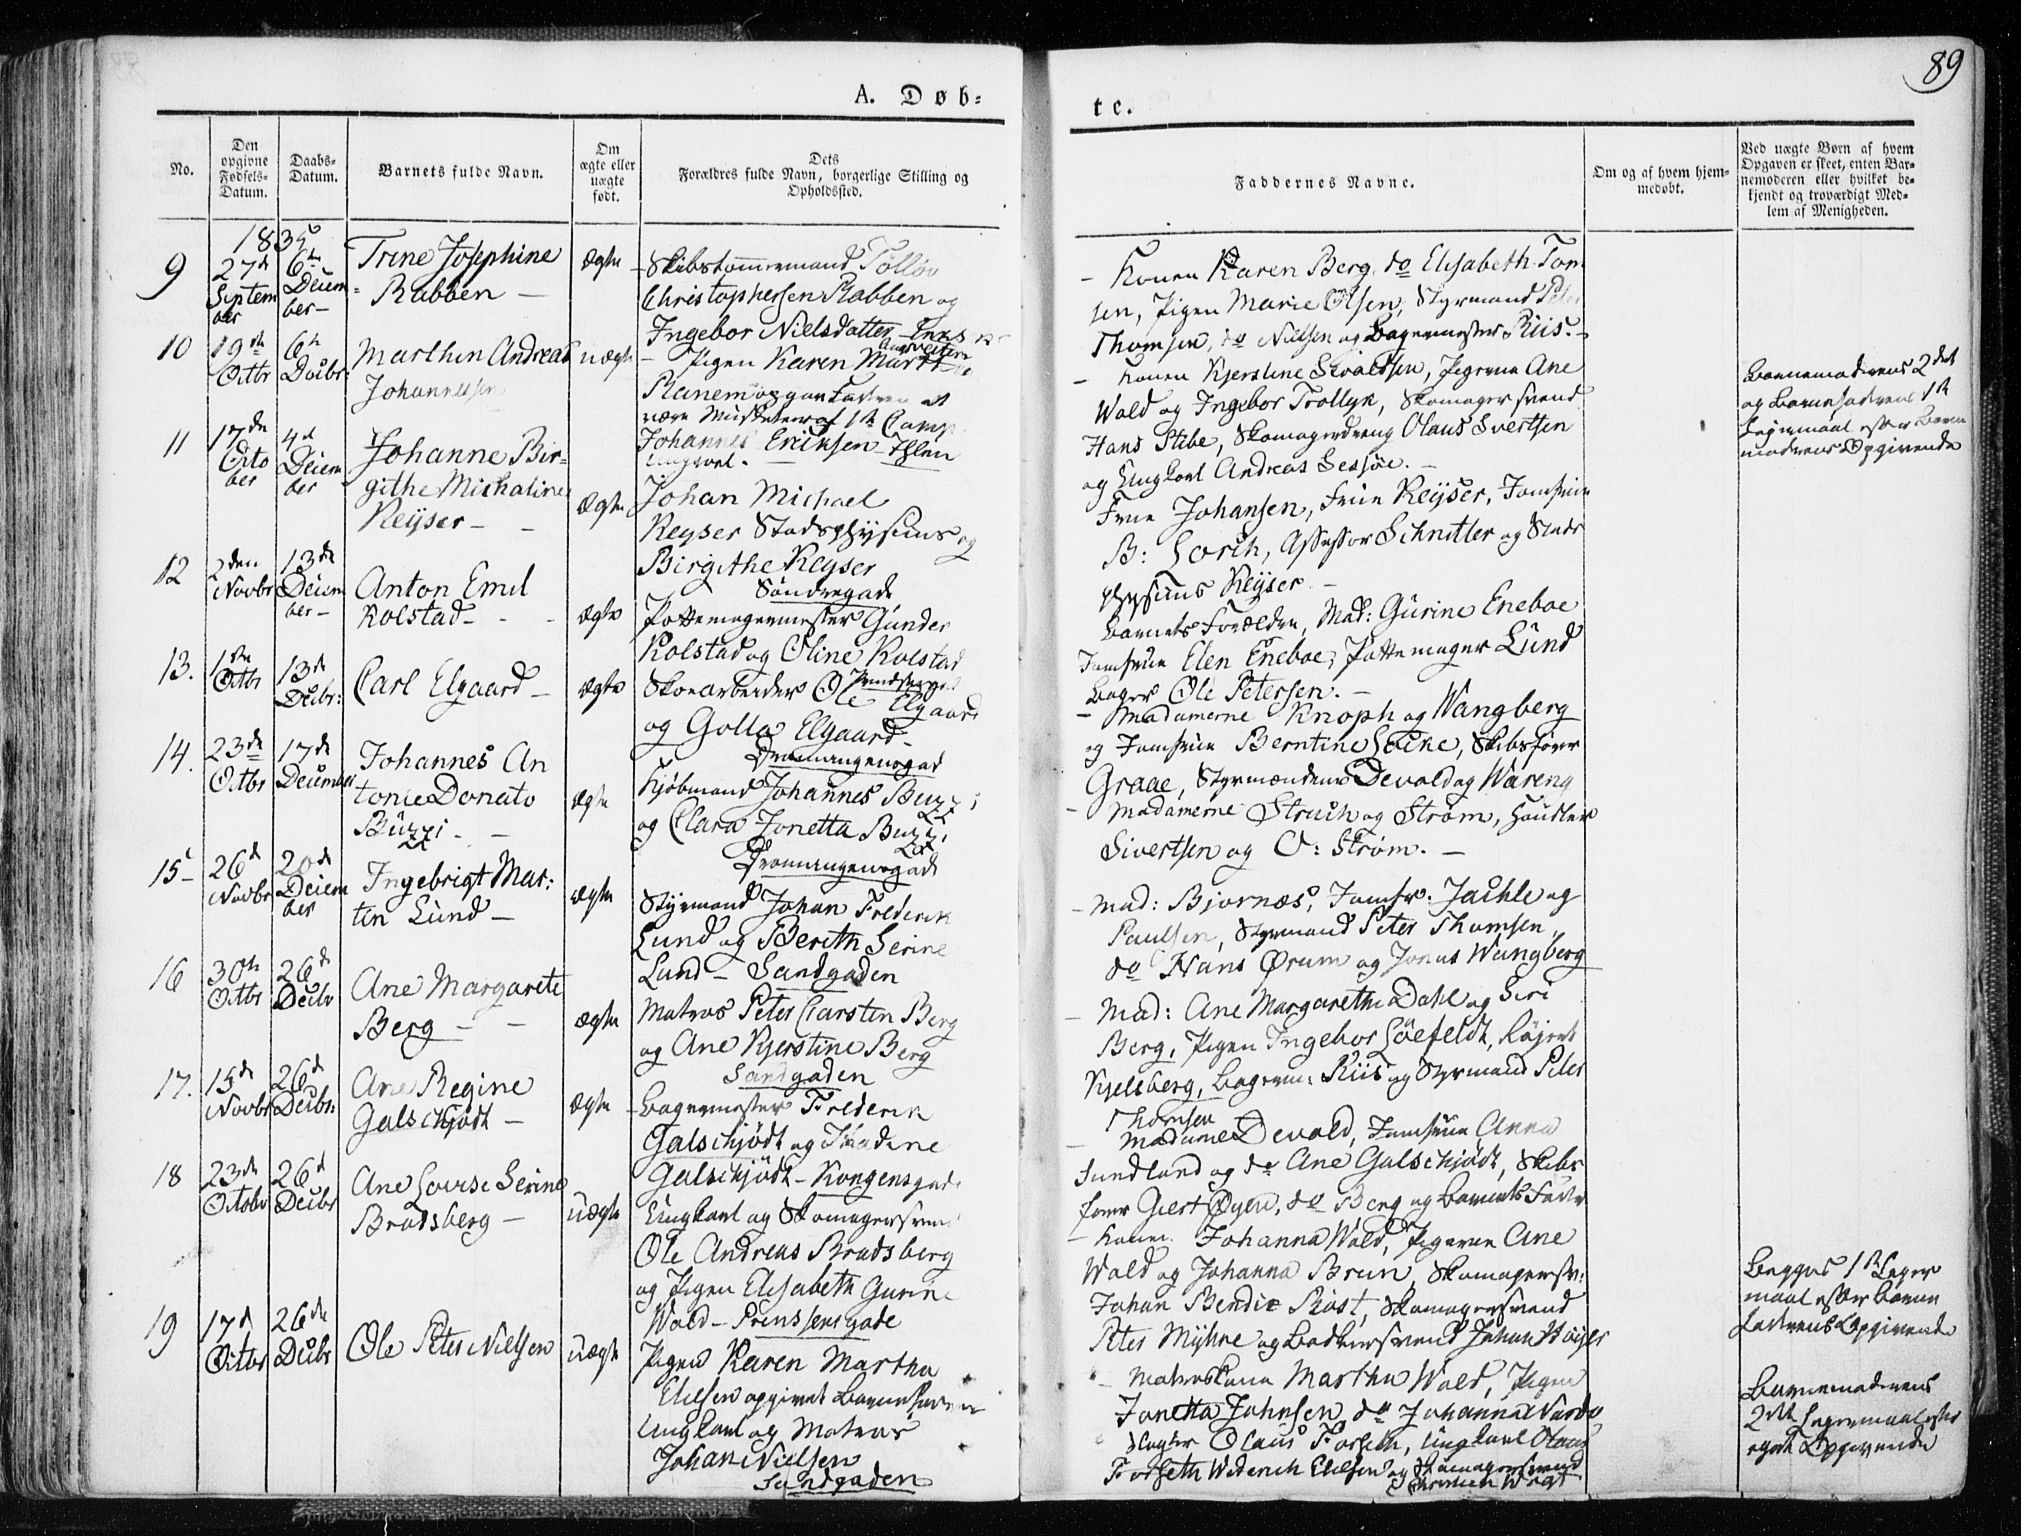 89
A. Døb-
te.
No.
Den
opgivne
Fødsels-
Datum.
Daabs-
Datum.
Barnets fulde Navn.
Om
ægte eller
uægte
født.
Dets
Forældres fulde Navn, borgerlige Stilling og
Opholdssted.
Faddernes Navne.
Om og af hvem hjem-
medøbt.
Ved uægte Børn af hvem
Opgaven er skeet, enten Bar-
nemoderen eller hvilket be-
kjendt og troværdigt Med-
lem af Menigheden.
1835
9
27de
Septem
ber
6te
Decem
ber
Trine Josephine
Rabben
Ægte
Skibstømmermand Tølløv
Christophersen Rabben og
Ingebor Nielsdatter
Konen Karen Berg, do Elisabeth Tom
sen, Pigen Marie Olsen, Styrmand Peter
Thomsen, do Nielsen og Bagermester Riis.
10
19de
Octbr
6te
Decbr:
Marthin Andreas
Johannessen
uægte
Pigen Karen Martha
Ranem opgav Faderen at
være Musketeer af 1te Comp.
Johannes Eriksen Ihlen
Ungkarl.
Konen Kjerstine Sivaldsen, Pigerne Ane
Wold og Ingebor Trollyk, Skomagersvend
Hans Stibe, Skomagerdreng Olaus Sivertsen
og Ungkarl Andreas Sesjøe.
Barnemoderens 2det
og Barnefaderens 1te
Leiermaal efter Barne
moderens Opgivende
11
17de
Octo
ber
4de
Decem
ber
Johanne Bir-
githe Michaline
Keyser
Ægte
Johan Michael
Keyser Stadsphysicus og
Birgithe Keyser
Søndregade
Frue Johansen, Frue Keyser, Jomfrue
B: Lorch, Assessor Schnitler og Stads
physicus Keyser.
12
2den
Novbr
13de
Decem
ber
Anton Emil
Kolstad
Ægte
Pottemagermester Gunder
Kolstad og Oline Kolstad
Barnets Forældre, Mad: Gurine Eneboe
Jomfrue Elen Eneboe, Pottemager Lund
Bager Ole Petersen.
13.
1ste
Octbr
13de
Decbr:
Carl Elgaard
Ægte
Skoearbeider Ole Elgaard
og Golla Elgaard
Dronningensgad
Madamerne Knoph og Wangberg
og Jomfrue Berntine Locke, Skibsfører
Graae, Styrmændene Devold og Wareng
14.
23de
Octbr
17de
December
Johannes An
tonie Donato
Buzzi
Ægte
Kjøbmand Johannes Buzzi
og Clara Jonetta Buzzi
Dronningensgade
Madamerne Struch og Strøm, Handler
Sivertsen og O: Strøm.
15
26de
Novbr
20de
Decem
ber
Ingebrigt Mar-
tin Lund
ægte
Styrmand Johan Frederik
Lund og Berith Serine
Lund - Sandgaden
Mad: Bjornæs, Jomfr. Jachle og
Paulsen, Styrmand Peter Thomsen,
do Hans Ørum og Jonas Wangberg
16
30te
Octbr
26de
Decbr
Ane Margarete
Berg
ægte
Matros Peter Carsten Berg
og Ane Kjerstine Berg
Sandgaden
Mad: Ane Margarethe Dahl og Siri
Berg, Pigen Ingebor Löefeldt,
Kjelsberg, Bagerm: Riis og Styrmand Peter
Thomsen
17.
15de
Novbr
26de
Decbr:
Ane Regine
Galschjødt
ægte
Bagermester Frederik
Galschjødt og
Galschjødt - Kongensgade
Madame Devold, Jomfrue Anna
Sundland og do Ane Galschjødt, Skibs
fører Giert Øyen, do Berg og Barnets Fader
18
23de
October
26de
Decbr
Ane Lovise Serine
Bratsberg
uægte
Ungkarl og Skomagersvend
Ole Andreas Bradsberg
og Pigen Elisabeth Gurine
Wold - Prinssensgade
Konen Johanna Wold, Pigerne Ane
Wold og Johanna Brun, Skomagersv:
Johan Bendix Röst, Skomagersvend
Peter Myhre og Bødkersvend Johan Høyer
Begges 1te Leier
maal efter Barne
faderens Opgivende
19
17de
Octbr
26de
Decbr
Ole Peter Nielsen
uægte
Pigen Karen Martha
Elilsen opgivet Barnefaderen
Ungkarl og Matros
Johan Nielsen
Sandgaden
Matroskone Martha Wold, Pigen
Jonetta Johnsen, do Johanna
Slagter Olaus Forseth, Ungkarl Olaus
Forseth, Elilsen og Skomagersvend
Wogt
Barnemoderens
2det Leiermaal efter
egen Opgivende